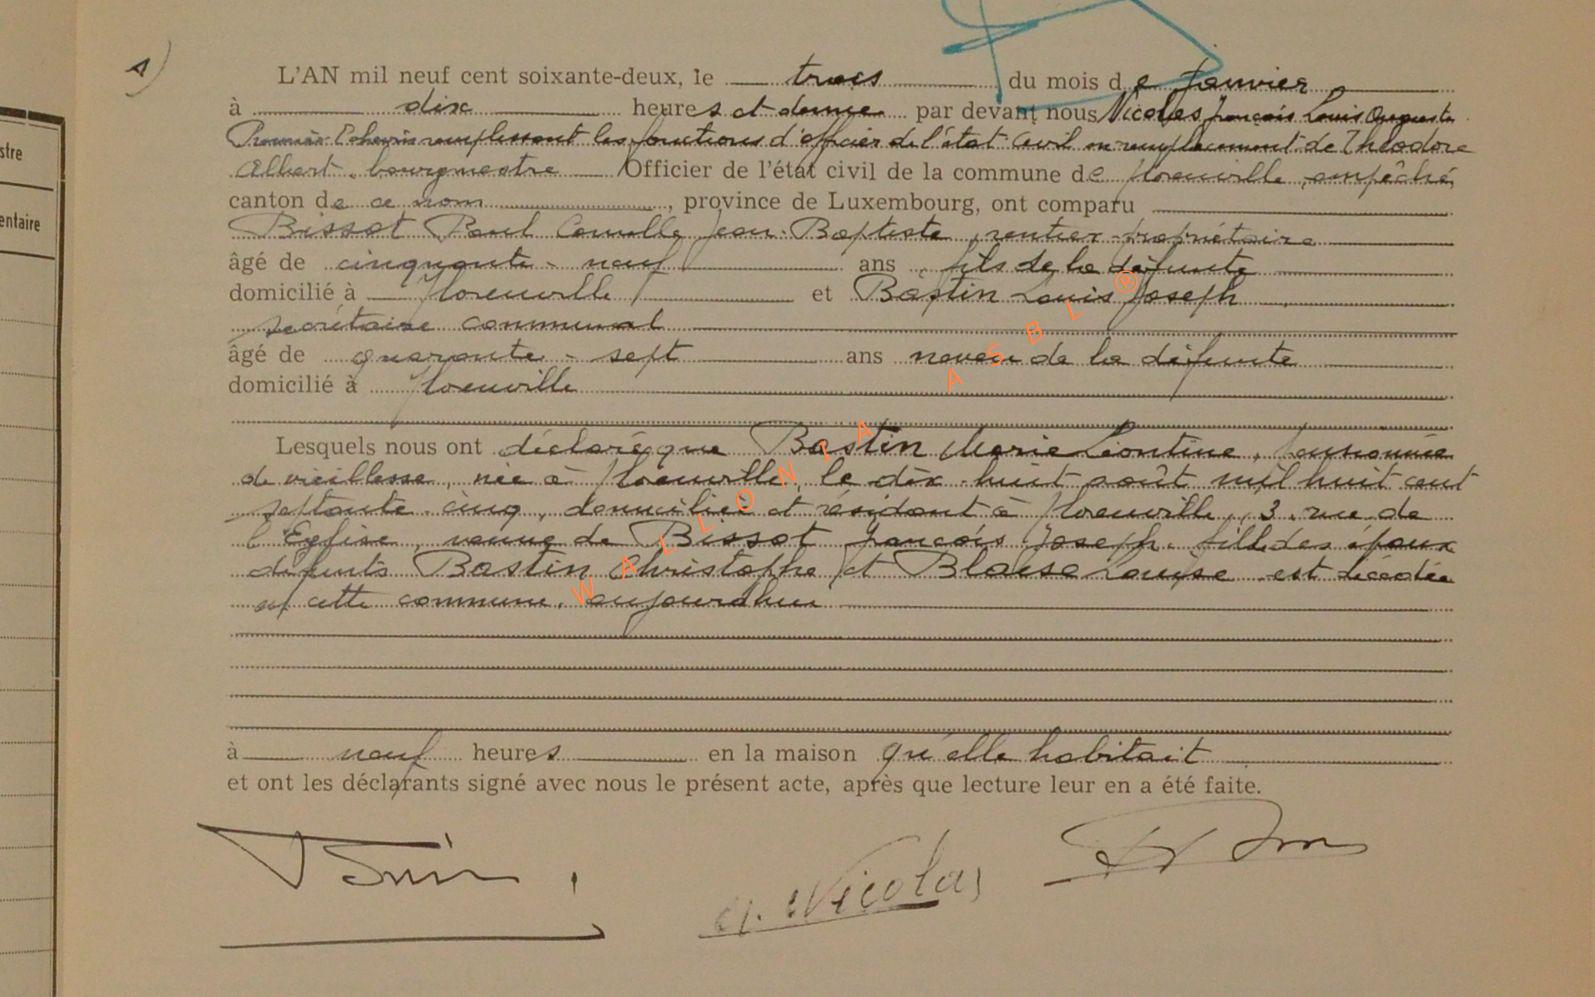 1)
L'AN mil neuf cent soixante-deux, le trois du mois de Janvier
à dix heures et demie par devant nous Nicolas François Louis Auguste
Premier Echevin remplissant les fonctions d'officier de l'état civil en remplacement de Théodore
Albert, bourgmestre Officier de l'état civil de la commune de Florenville empêché
canton de ce nom, province de Luxembourg, ont comparu
Bissot Paul Camille Jean-Baptiste, rentier-propriétaire
âgé de cinquante-neuf ans fils de la défunte
domicilié à Florenville et Bastin Louis Joseph
secrétaire communal
âgé de quarante-sept ans neveu de la défunte
domicilié à Florenville
Lesquels nous ont déclaré que Bastin Marie Léontine, pensionnée
de vieillesse, née à Florenville, le dix-huit août mil huit cent
septante-cinq, domiciliée et résidant à Florenville, 3, rue de
l'Eglise, veuve de Bissot François Joseph, fille des époux
défunts Bastin Christophe et Blaise Louise est décédée
en cette commune, aujourdhui
à neuf heures en la maison qu'elle habitait
et ont les déclarants signé avec nous le présent acte, après que lecture leur en a été faite.
A. Nicolas
WALLONIA ASBL ®
stre
entaire